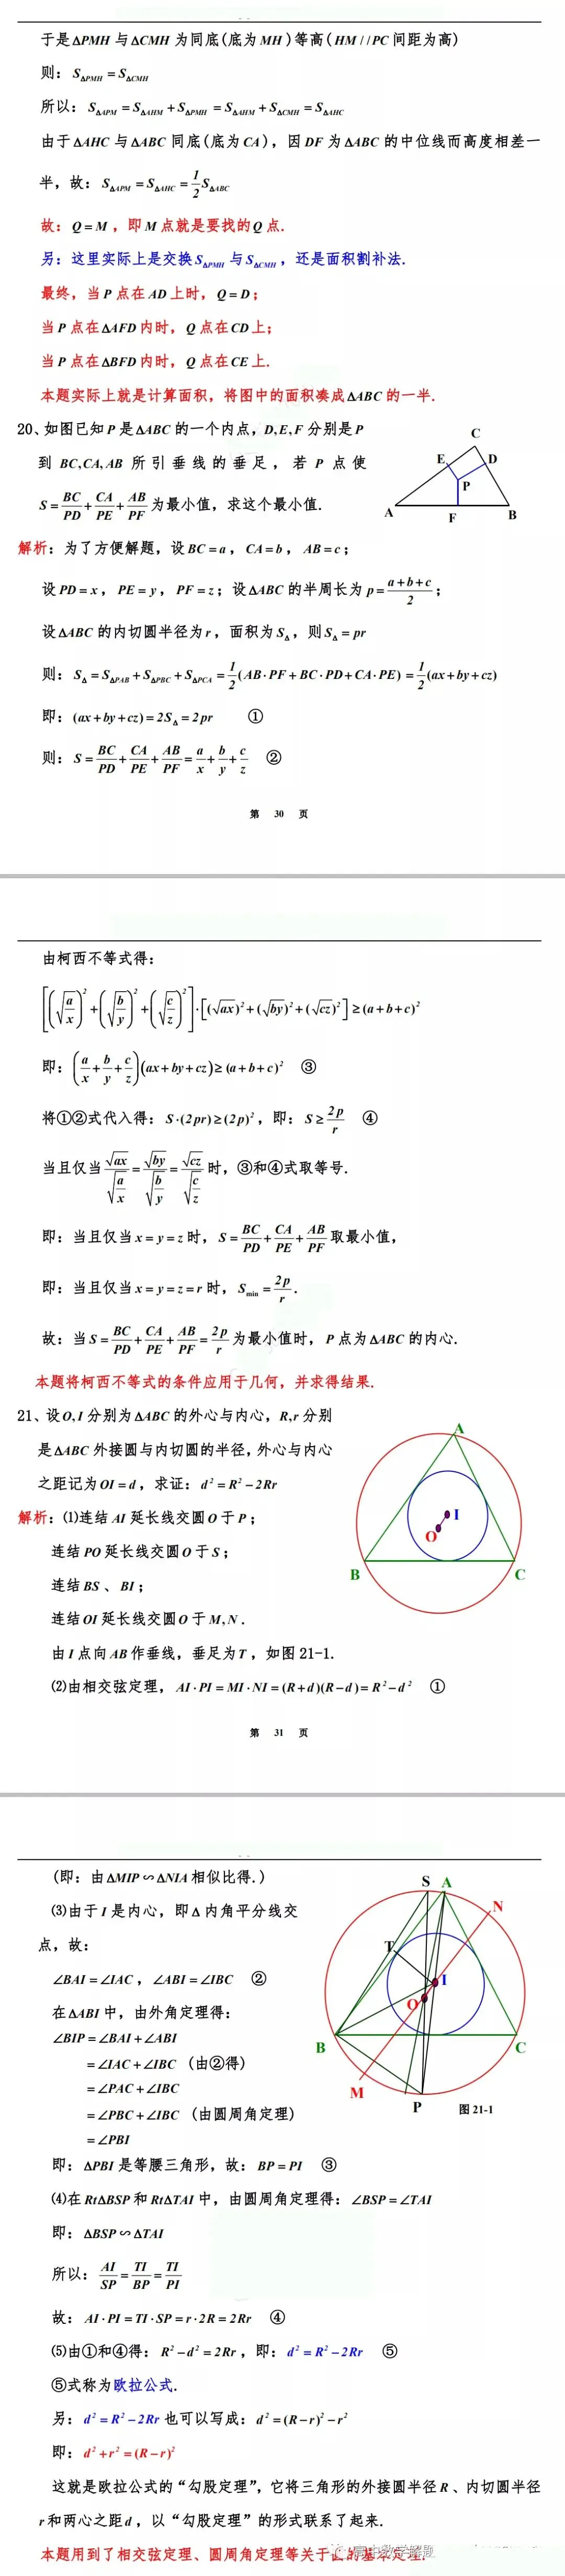 于是ΔPMH与ΔCMH为同底(底为MH)等高(HM//PC间距为高)
则：S_ΔPMH = S_ΔCMH
所以：S_ΔAPM = S_ΔAHM + S_ΔPMH = S_ΔAHM + S_ΔCMH = S_ΔAHC
由于ΔAHC与ΔABC同底(底为CA)，因DF为ΔABC的中位线而高度相差一
半，故：S_ΔAPM = S_ΔAHC = 1/2 S_ΔABC
故：Q=M，即M点就是要找的Q点.
另：这里实际上是交换S_ΔPMH与S_ΔCMH，还是面积割补法.
最终，当P点在AD上时，Q=D；
当P点在ΔAFD内时，Q点在CD上；
当P点在ΔBFD内时，Q点在CE上.
本题实际上就是计算面积，将图中的面积凑成ΔABC的一半.
20、如图已知P是ΔABC的一个内点，D,E,F分别是P
到BC,CA,AB所引垂线的垂足，若P点使
S = BC/PD + CA/PE + AB/PF 为最小值，求这个最小值.
C
E
D
P
A
F
B
解析：为了方便解题，设BC=a，CA=b，AB=c；
设PD=x，PE=y，PF=z；设ΔABC的半周长为p=(a+b+c)/2；
设ΔABC的内切圆半径为r，面积为S_Δ，则S_Δ=pr
则：S_Δ = S_ΔPAB + S_ΔPBC + S_ΔPCA = 1/2(AB·PF+BC·PD+CA·PE) = 1/2(ax+by+cz)
即：(ax+by+cz)=2S_Δ=2pr ①
则：S = BC/PD + CA/PE + AB/PF = a/x + b/y + c/z ②
第 30 页
由柯西不等式得：
[(√(a/x))² + (√(b/y))² + (√(c/z))²]·[(√ax)²+(√by)²+(√cz)²] ≥ (a+b+c)²
即：(a/x + b/y + c/z)(ax+by+cz) ≥ (a+b+c)² ③
将①②式代入得：S·(2pr)≥(2p)²，即：S≥2p/r ④
当且仅当 √ax/√(a/x) = √by/√(b/y) = √cz/√(c/z) 时，③和④式取等号.
即：当且仅当x=y=z时，S = BC/PD + CA/PE + AB/PF 取最小值，
即：当且仅当x=y=z=r时，S_min = 2p/r.
故：当S = BC/PD + CA/PE + AB/PF = 2p/r 为最小值时，P点为ΔABC的内心.
本题将柯西不等式的条件应用于几何，并求得结果.
21、设O,I分别为ΔABC的外心与内心，R,r分别
是ΔABC外接圆与内切圆的半径，外心与内心
之距记为OI=d，求证：d²=R²−2Rr
解析：⑴连结AI延长线交圆O于P；
连结PO延长线交圆O于S；
连结BS、BI；
连结OI延长线交圆O于M,N.
由I点向AB作垂线，垂足为T，如图21-1.
A
I
O
B
C
⑵由相交弦定理，AI·PI=MI·NI=(R+d)(R−d)=R²−d² ①
第 31 页
(即：由ΔMIP∽ΔNIA相似比得.)
⑶由于I是内心，即Δ内角平分线交
点，故：
∠BAI=∠IAC，∠ABI=∠IBC ②
在ΔABI中，由外角定理得：
∠BIP=∠BAI+∠ABI
=∠IAC+∠IBC (由②得)
=∠PAC+∠IBC
=∠PBC+∠IBC (由圆周角定理)
=∠PBI
S
A
N
T
I
O
B
C
M
P
图21-1
即：ΔPBI是等腰三角形，故：BP=PI ③
⑷在RtΔBSP和RtΔTAI中，由圆周角定理得：∠BSP=∠TAI
即：ΔBSP∽ΔTAI
所以：AI/SP = TI/BP = TI/PI
故：AI·PI=TI·SP=r·2R=2Rr ④
⑸由①和④得：R²−d²=2Rr，即：d²=R²−2Rr ⑤
⑤式称为欧拉公式.
另：d²=R²−2Rr也可以写成：d²=(R−r)²−r²
即：d²+r²=(R−r)²
这就是欧拉公式的“勾股定理”，它将三角形的外接圆半径R、内切圆半径
r和两心之距d，以“勾股定理”的形式联系了起来.
本题用到了相交弦定理、圆周角定理等关于圆的基本定理.